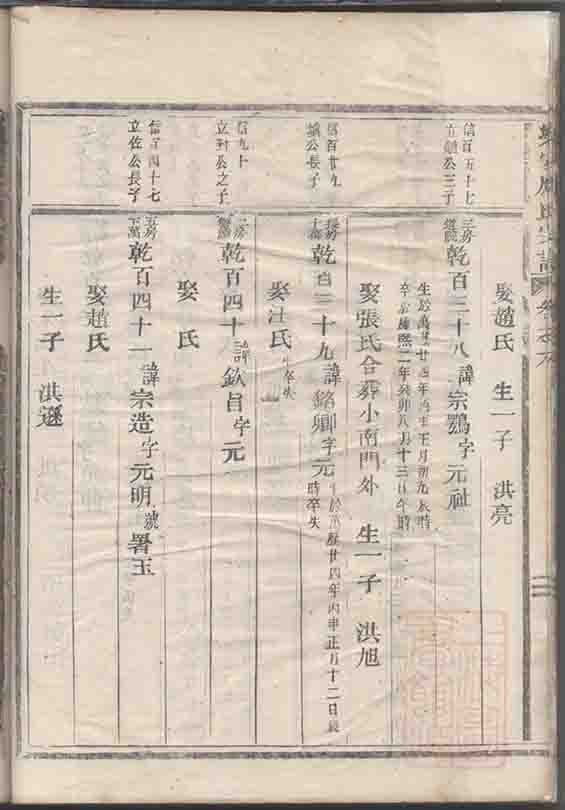 娶趙氏 生一子 洪亮
信百五十七
公三子
三房
乾百三十八 諱宗鸚字元祉
生於萬曆廿四年丙申正月初九辰時
卒於康熙二年癸卯八月十三日午時
娶張氏合葬小南門外 生一子 洪旭
信百廿九
公長子
長房
乾百三十九 諱銘卿字元
生於萬曆廿四年丙申正月十二日辰
時卒失
娶汪氏生卒失
信九十
立對公之子
二房
乾百四十 諱欽昌字元
娶 氏
信百四十七
立佐公長子
乾百四十一 諱宗造字元明號署玉
娶趙氏
生一子 洪遜